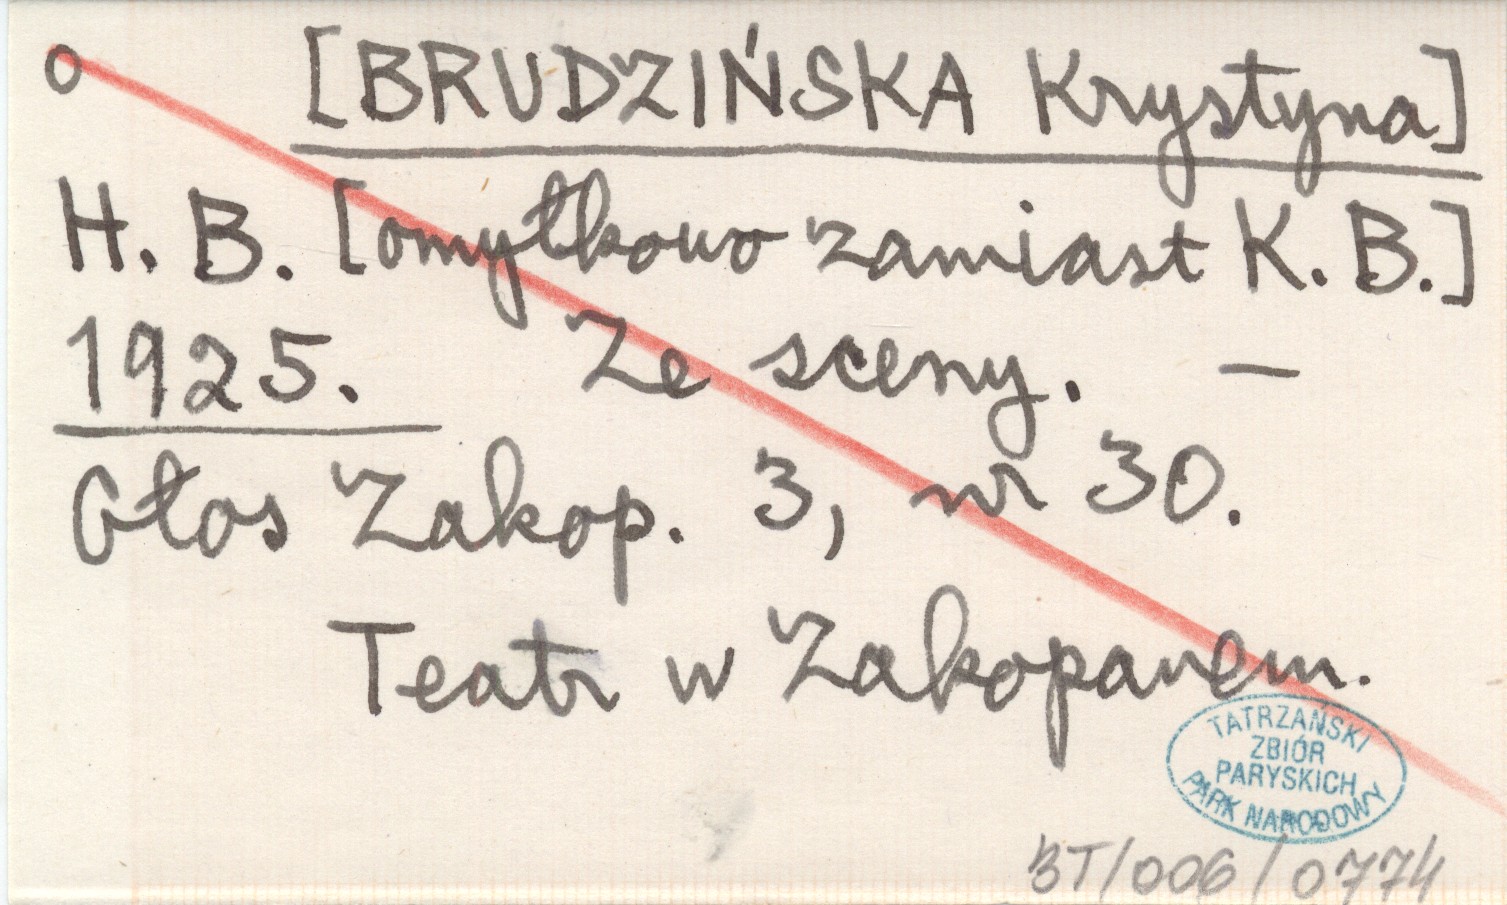 o [BRUDZIŃSKA Krystyna]
H. B. [omyłkowo zamiast K. B.]
1925. Ze sceny. —
Głos Zakop. 3, nr 30.
Teatr w Zakopanem.
TATRZAŃSKI
ZBIÓR
PARYSKICH
PARK NARODOWY
BT/006/0774